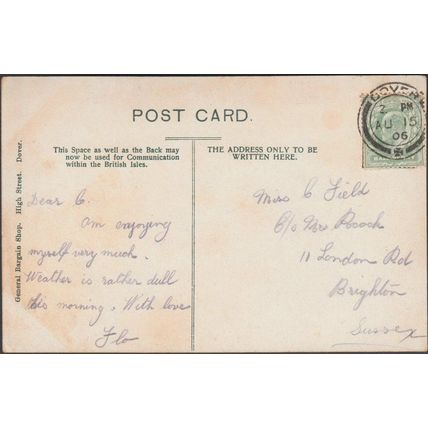 POST CARD.
This Space as well as the Back may
now be used for Communication
within the British Isles.
THE ADDRESS ONLY TO BE
WRITTEN HERE.
General Bargain Shop. High Street. Dover.
Dear C.
Am enjoying
myself very much.
Weather is rather dull
this morning. With love
Flo
Miss C Field
C/o Mrs
11 London Rd
Brighton
Sussex
DOVER
2 PM
AU 15
06